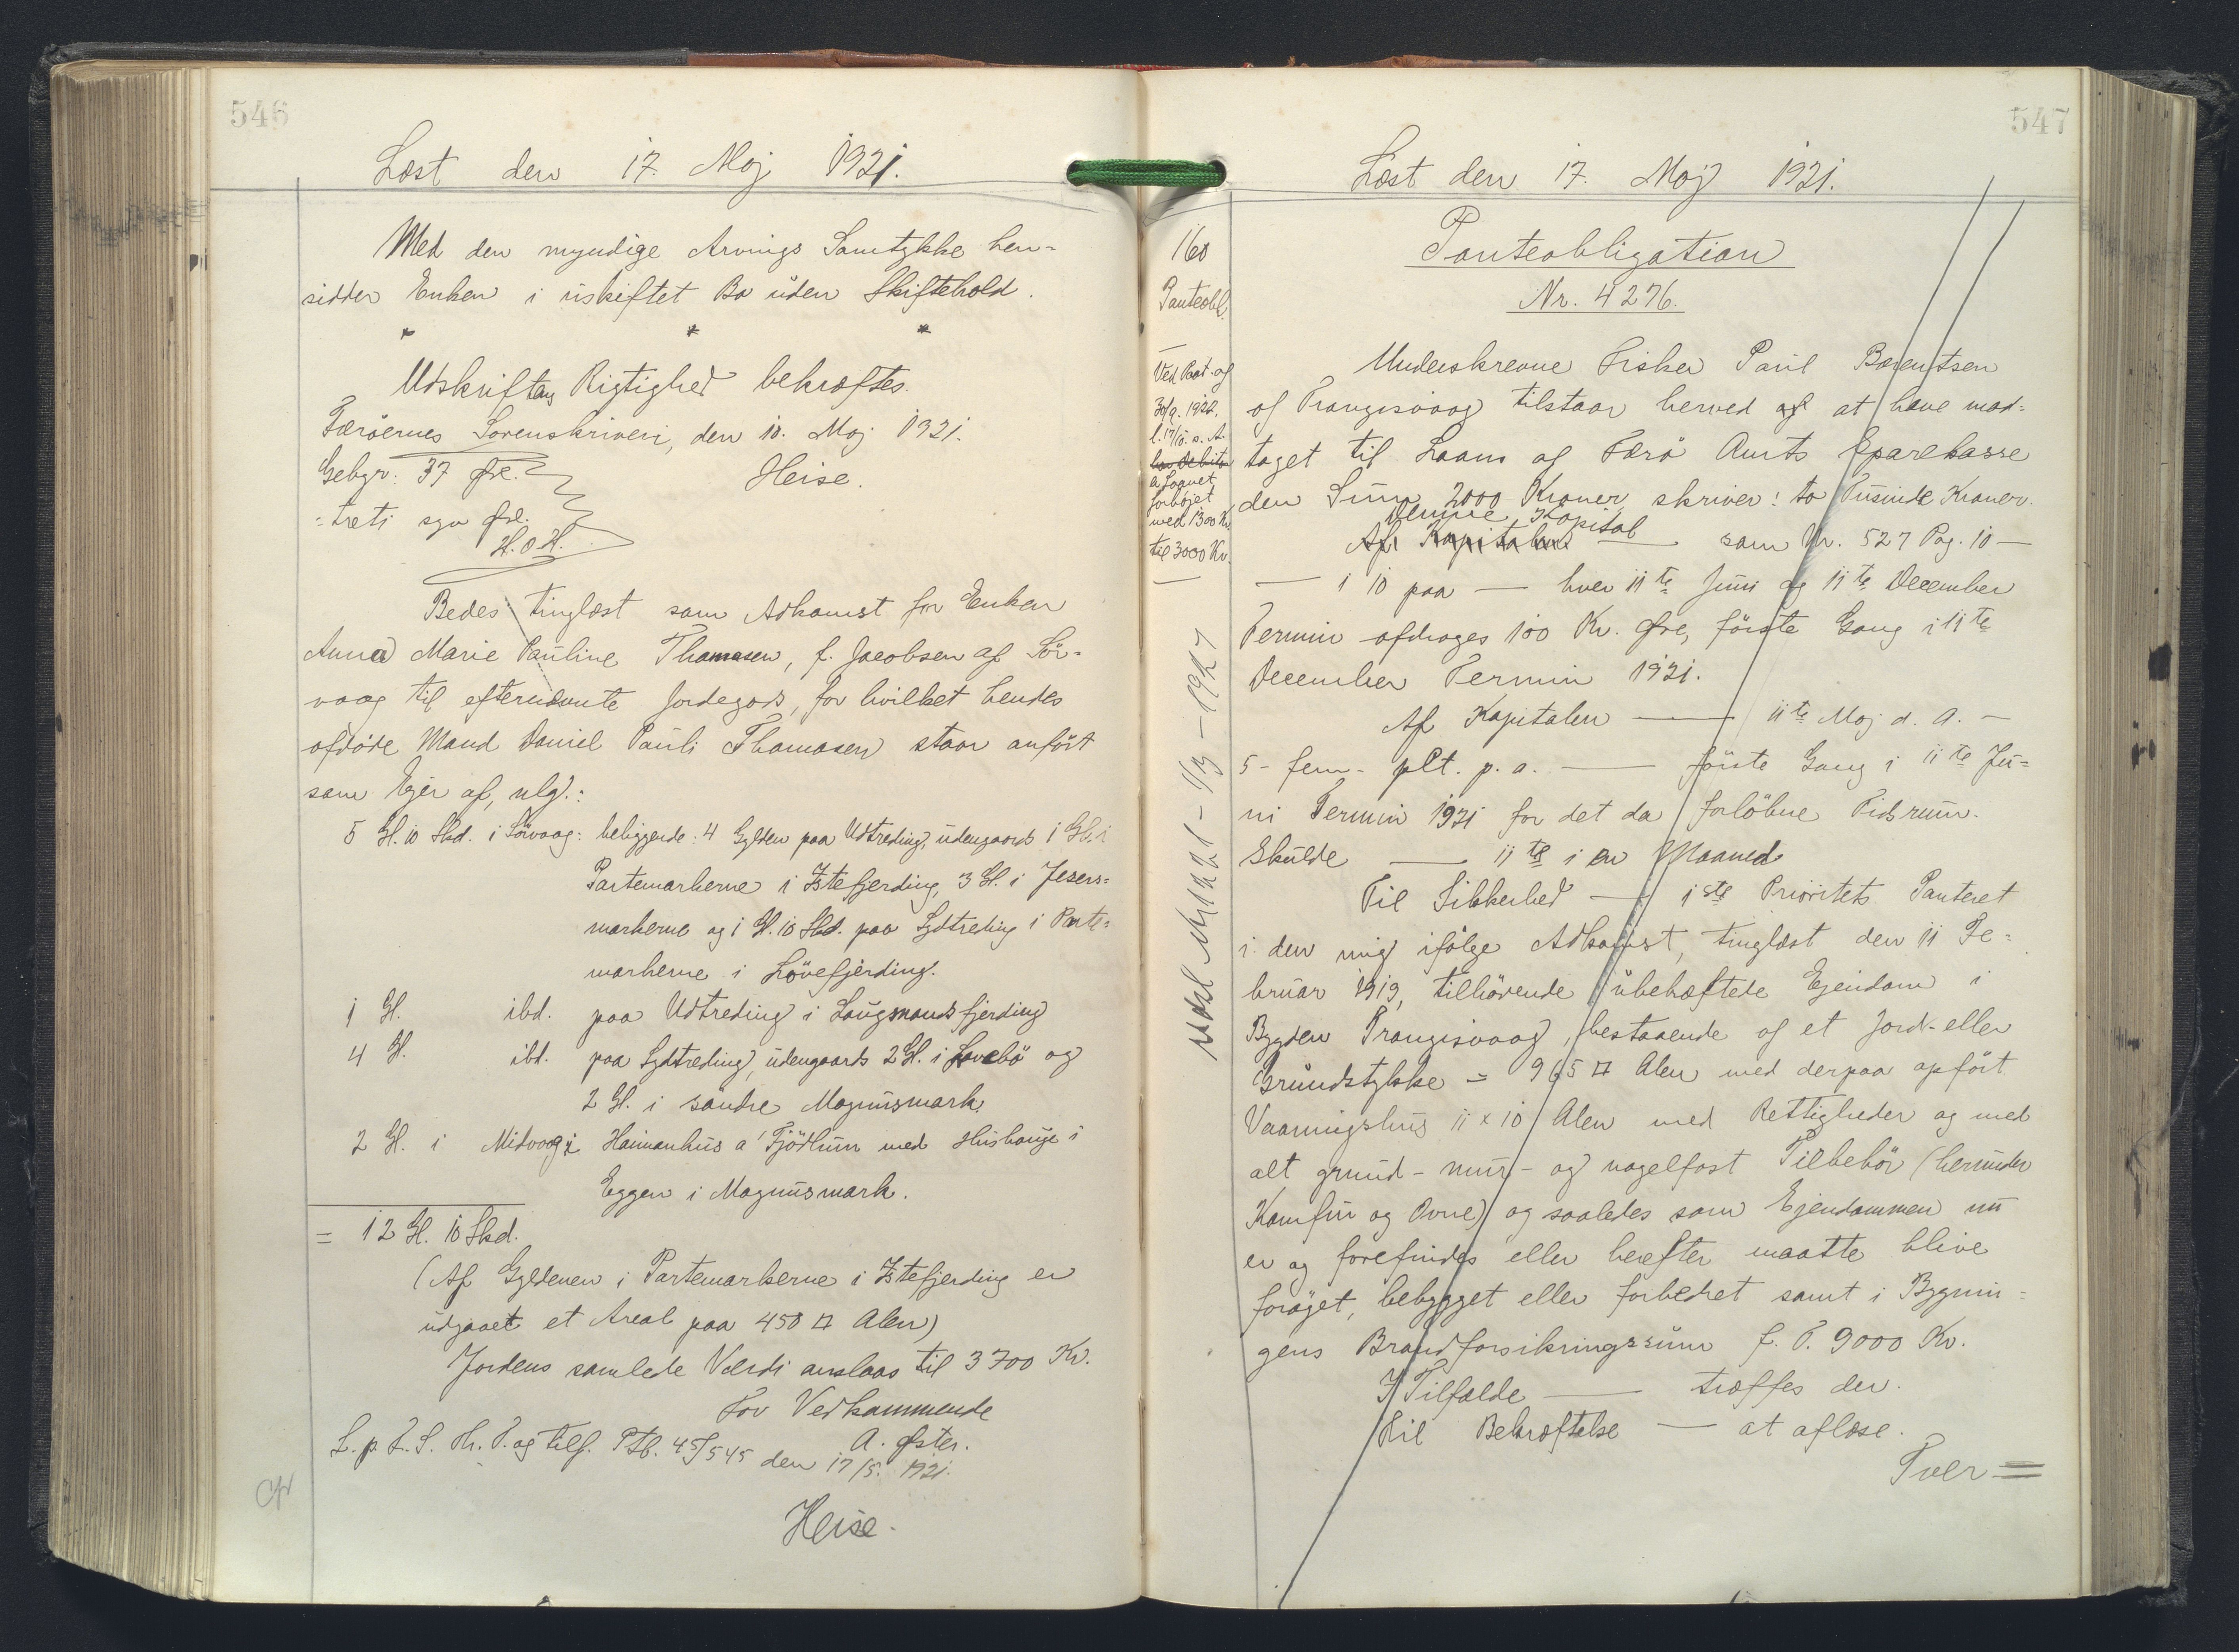 546
Læst den 17. Maj 1921.
Med den myndige Arvings Samtykke hen-
sidder Enken i uskiftet Bo uden Skiftehold.
" " "
Udskriftens Rigtighed bekræftes.
Færöernes Sorenskriveri, den 10. Maj 1921.
Gebyr: 37 Øre. Heise.
=treti syv Øre.
H.O.H.
Bedes tinglæst som Adkomst for Enken
Anna Marie Pauline Thomasen, f. Jacobsen af Sör-
vaag til efternævnte Jordegods, for hvilket hendes
afdöde Mand Daniel Pauli Thomasen staar anfört
som Ejer af, nlg.:
5 Gl. 10 Skd. i Sörvaag: beliggende: 4 Gylden paa Udtreding, udengaards 1 Gl. i
Partemarkerne i Istefjerding, 3 Gl. i Jesers=
markerne og 1 Gl. 10 Skd. paa Sydtreding i Parte=
markerne i Lövefjerding.
1 Gl. ibd. paa Udtreding i Laugmandsfjerding
4 Gl. ibd. paa Sydtreding, udengaards 2 Gl. i Lovebö og
2 Gl. i söndre Magnusmark,
2 Gl. i Midvaag i Haimanhus a Tjödhum med Hushauge i
Eggen i Magnusmark.
= 12 Gl. 10 Skd.
(Af Gyldenen i Partemarkerne i Istefjerding er
udgaaet et Areal paa 450 □ Alen)
Jordens samlede Værdi anslaas til 3700 Kr.
For Vedkommende
A. Øster.
L. p. F. S. Hr. P. og tilf. Ptb. 45/545 den 17/5. 1921.
Heise.
547
Læst den 17. Maj 1921.
160
Panteobl.
Ved Paat. af
30/9. 1922.
l. 17/10. s. A.
har Debitor
a Laanet
forhøjet
med 1300 Kr.
til 3000 Kr.
Panteobligation
Nr. 4276.
Underskrevne Fisker Paul Barentsen
af Trangisvaag tilstaar herved af at have mod=
taget til Laans af Færö Amts Sparekasse
den Sum 2000 Kroner, skriver: to Tusinde Kroner.
Denne Kapital
Af Kapitalen — som Nr. 527 Pag. 10 —
— 1 10 paa — hver 11te Juni og 11te December
Termin afdrages 100 Kr. Øre, förste Gang i 11te
December Termin 1921.
Af Kapitalen — 11te Maj d. A. —
5 - fem - pCt. p. a. — förste Gang i 11te Ju=
ni Termin 1921 for det da forlöbne Tidsrum.
Skulde — 11te i en Maaned
Til Sikkerhed — 1ste Prioritets Panteret
i den mig ifölge Adkomst, tinglæst den 11 Fe=
bruar 1919, tilhörende ubehæftede Ejendom i
Bygden Trangisvaag, bestaaende af et Jord- eller
Grundstykke = 965 □ Alen med derpaa opfört
Vaaningshus 11 x 10 Alen med Rettigheder og med
alt grund- mur- og nagelfast Tilbehör (herunder
Komfur og Ovne) og saaledes som Ejendommen nu
er og forefindes eller herefter maatte blive
foröget, bebygget eller forbedret samt i Bygnin=
gens Brandforsikringssum f. T. 9000 Kr.
I Tilfælde — træffes der.
Til Bekræftelse — at aflæse.
Tver=